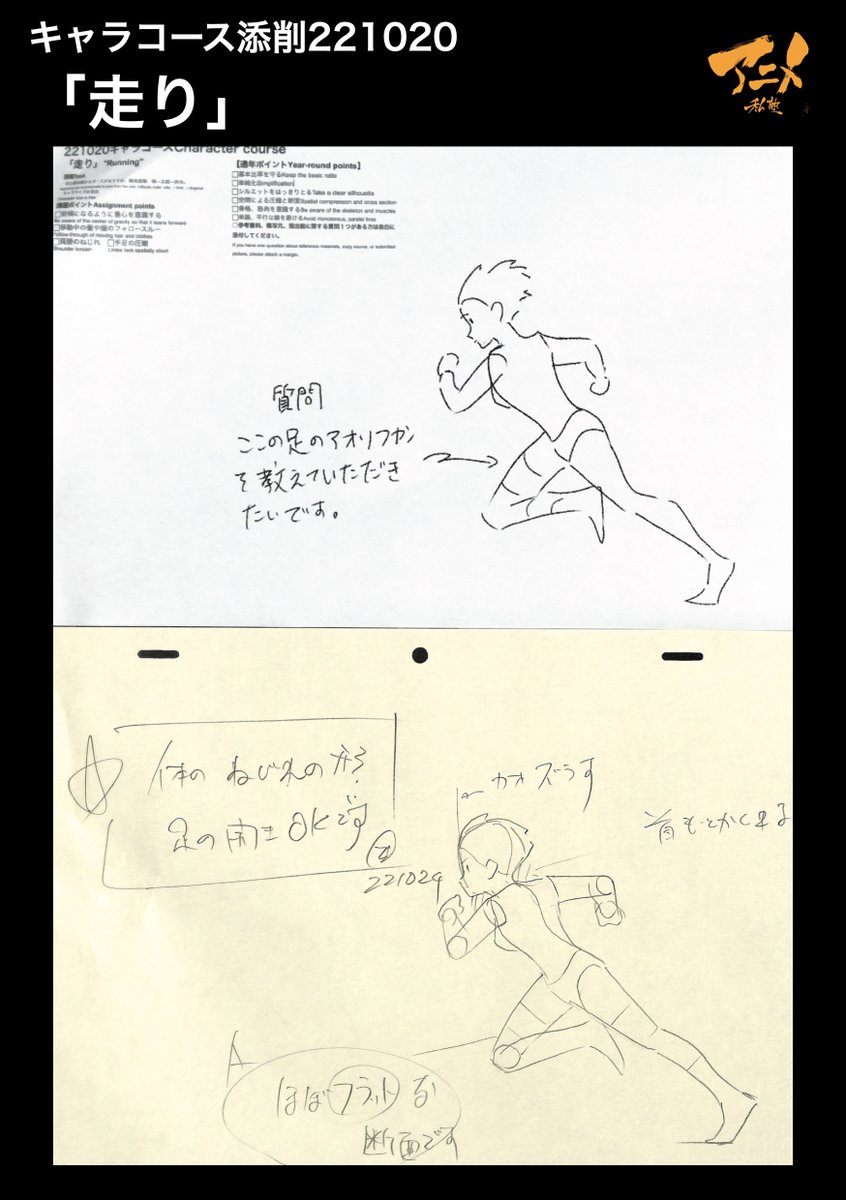 キャラコース添削221020
「走り」
アニメ
私塾
221020キャラコースCharacter course
「走り」"Running"
課題Task
課題ポイントAssignment points
□前傾になるように重心を意識する
Be aware of the center of gravity so that it leans forward
□移動中の髪や服のフォロースルー
Follow-through of moving hair and clothes
□肩腰のねじれ □手足の圧縮
Shoulder torsion Limbs look spatially short
【通年ポイントYear-round points】
□基本比率を守るKeep the basic ratio
□単純化Simplification
□シルエットをはっきりとるTake a clear silhouette
□空間による圧縮と断面Spatial compression and cross section
□骨格、筋肉を意識するBe aware of the skeleton and muscles
□単調、平行な線を避けるAvoid monotonous, parallel lines
○参考資料、模写元、提出絵に関する質問1つがある方は余白に
添付してください。
If you have one question about reference materials, copy source, or submitted
picture, please attach a margin.
質問
ここの足のアオリフカン
を教えていただき
たいです。
体のねじれの
足の開きOKです
221024
カオズラす
首もとかくれる
A
ほぼフラットな
断面です